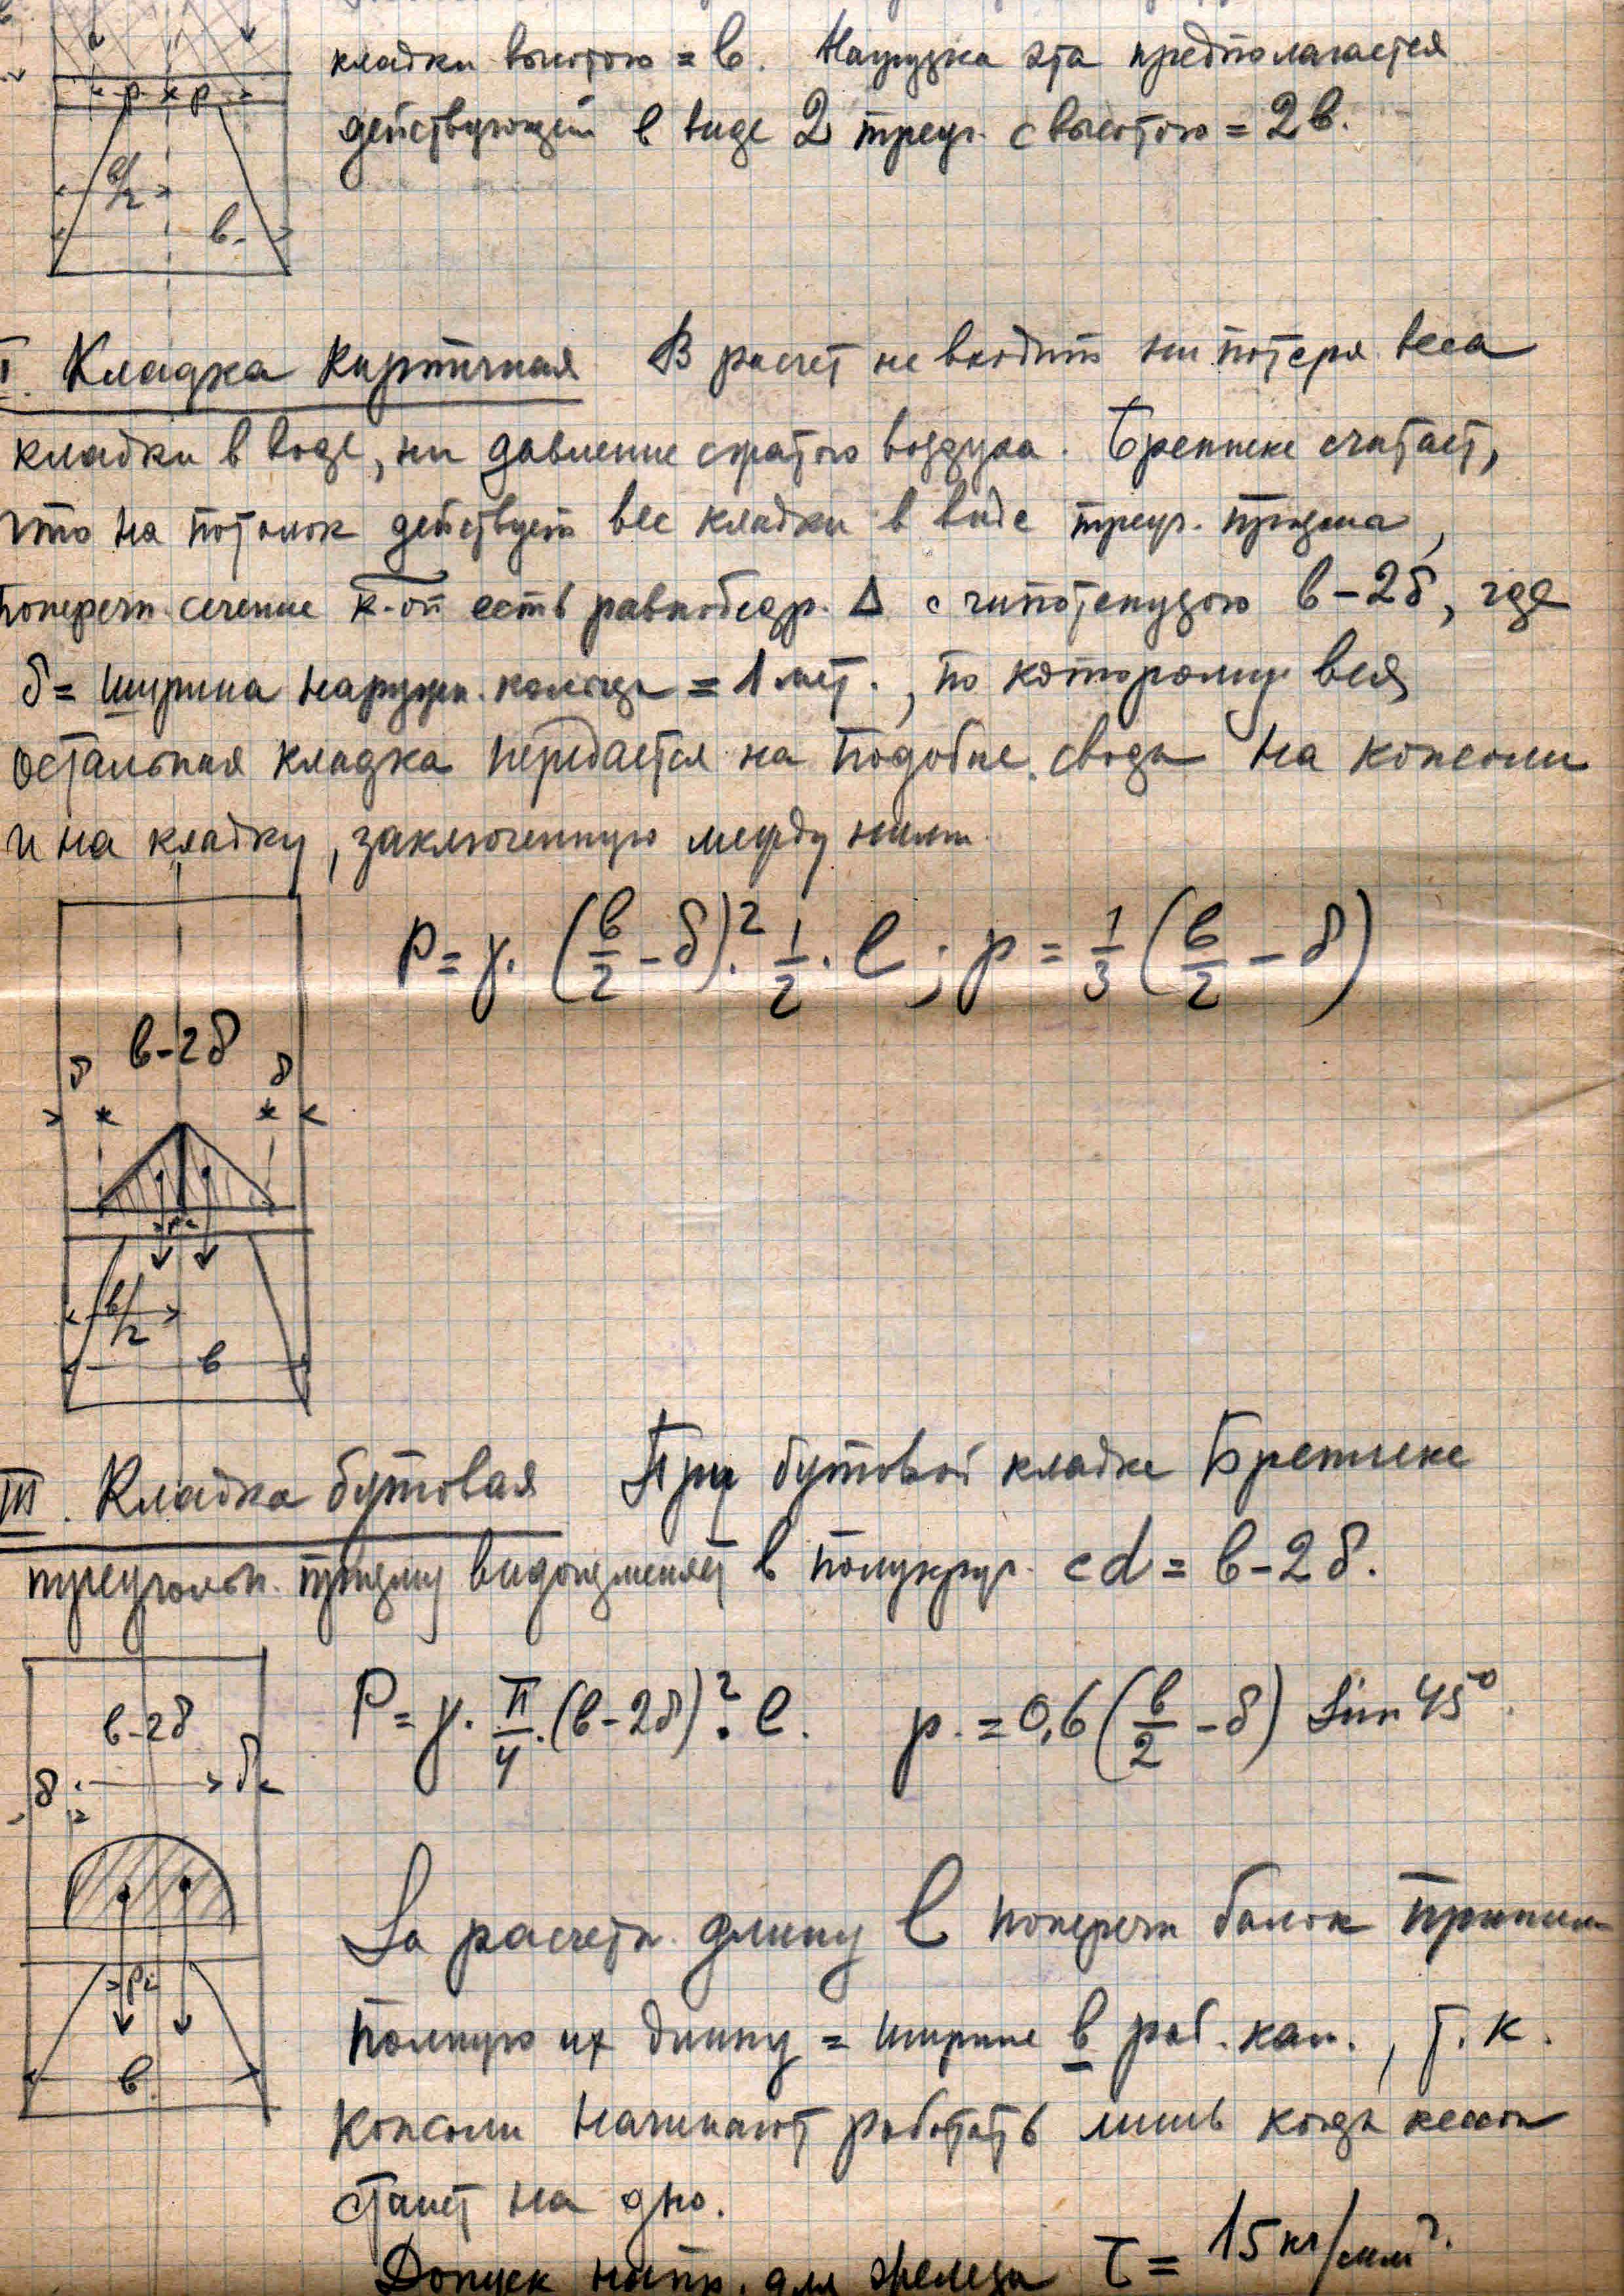 кладки высотою = в. Нагрузка эта предполагается
действующей в виде 2 треуг. с высотою = 2в.
p p
в/2
в
I. Кладка кирпичная В расчет не входит ни потеря веса
кладки в воде, ни давление сжатого воздуха. Бреннеке считает,
что на потолок действует вес кладки в виде треуг. призма,
поперечн. сечение к-ой есть равнобедр. Δ с гипотенузою в-2δ, где
δ = ширина наружн. кольца = 1 мет., по которому вся
остальная кладка передается на подобие свода на консоли
и на кладку, заключенную между ними.
P = γ·(в/2 - δ)²·1/2·l; p = 1/3 (в/2 - δ)
в-2δ
δ δ
p
в/2
в
III. Кладка бутовая При бутовой кладке Бреннеке
треугольн. призму видоизменяет в полукруг. с d = в-2δ.
P = γ·π/4·(в-2δ)²·l. p = 0,6 (в/2 - δ) Sin 45°.
в-2δ
δ δ
p
в
За расчетн. длину l поперечн балок приним
полную их длину = ширине в раб. кам., т.к.
консоли начинают работать лишь когда кессон
станет на дно.
Допуск напр. для железа τ = 15 кг/мм².